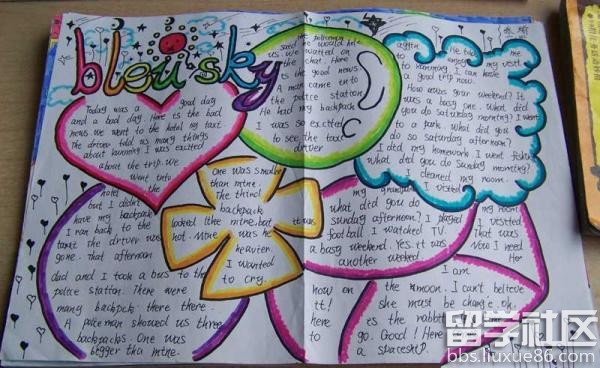 bleu sky
Today was a good day
and a bad day. Here is the bad
news. We went to the hotel by taxi.
The driver told us many things
about kunming I was excited
about the trip. We
went into
the
hotel
but I didn't
have my backpack
I ran back to the
taxi. the driver was
gone. That afternoon
dad and I took a bus to the
police station. There were
many backpcks there there.
A policeman showed us three
backpacks. One was
bigger tha mine.
One was smaller
than mine.
The third
backpack
looked like mine. but it was
not. Mine was
heavier.
I wanted
to cry.
The policeman
said he would
us. We waited on
that. Here
is the good news
A man came in to
the police station
He had my backpack
I was so excited
to see the taxi
driver
again. He told me
to enjoy my visit
to kunming I can have
a good trip now.
How was your weekend? It
was a busy one. What did
you do Saturday morning? I went
to a park. What did you
do so Saturday afternoon?
I did my homework. I went fishing
what did you do Sunday morning?
I cleaned my room.
I visited
my grandparents
what did you do
sunday afternoon? I played
football. I watched TV.
a busy weekend. Yes. it was
another weekend
my room
I visited.
That was
Now I need
Her
I am
now on the moon. I can't believe
it! she must be chang'e. oh,
here is the rabbit
to go. Good! Here
a spaceship.
留学社区
bbs.liuxue86.com